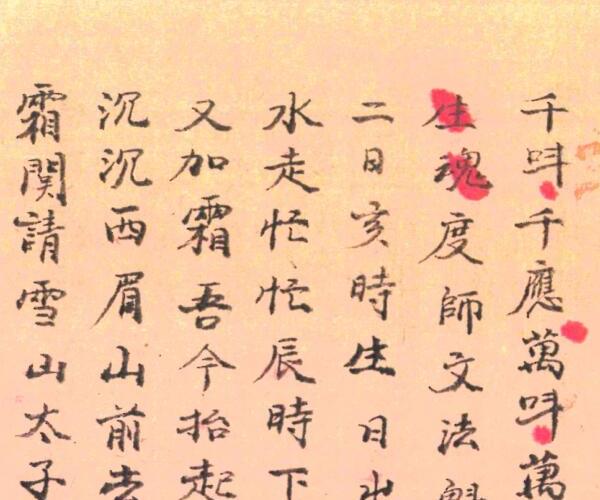 千呌千應萬呌萬
生魂度師文法魁
二日亥時生日出
水走忙忙辰時下
又加霜吾今抬起
沉沉西眉山前去
霜関請雪山太子